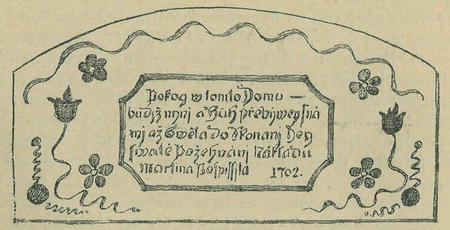 Pokog w tomto Domu —
budiž nyni a Buh přebiwey s ná
mi až Swěta do Skonani Dey
Požehnáni Nákladů
Martina Pospissila 1702.